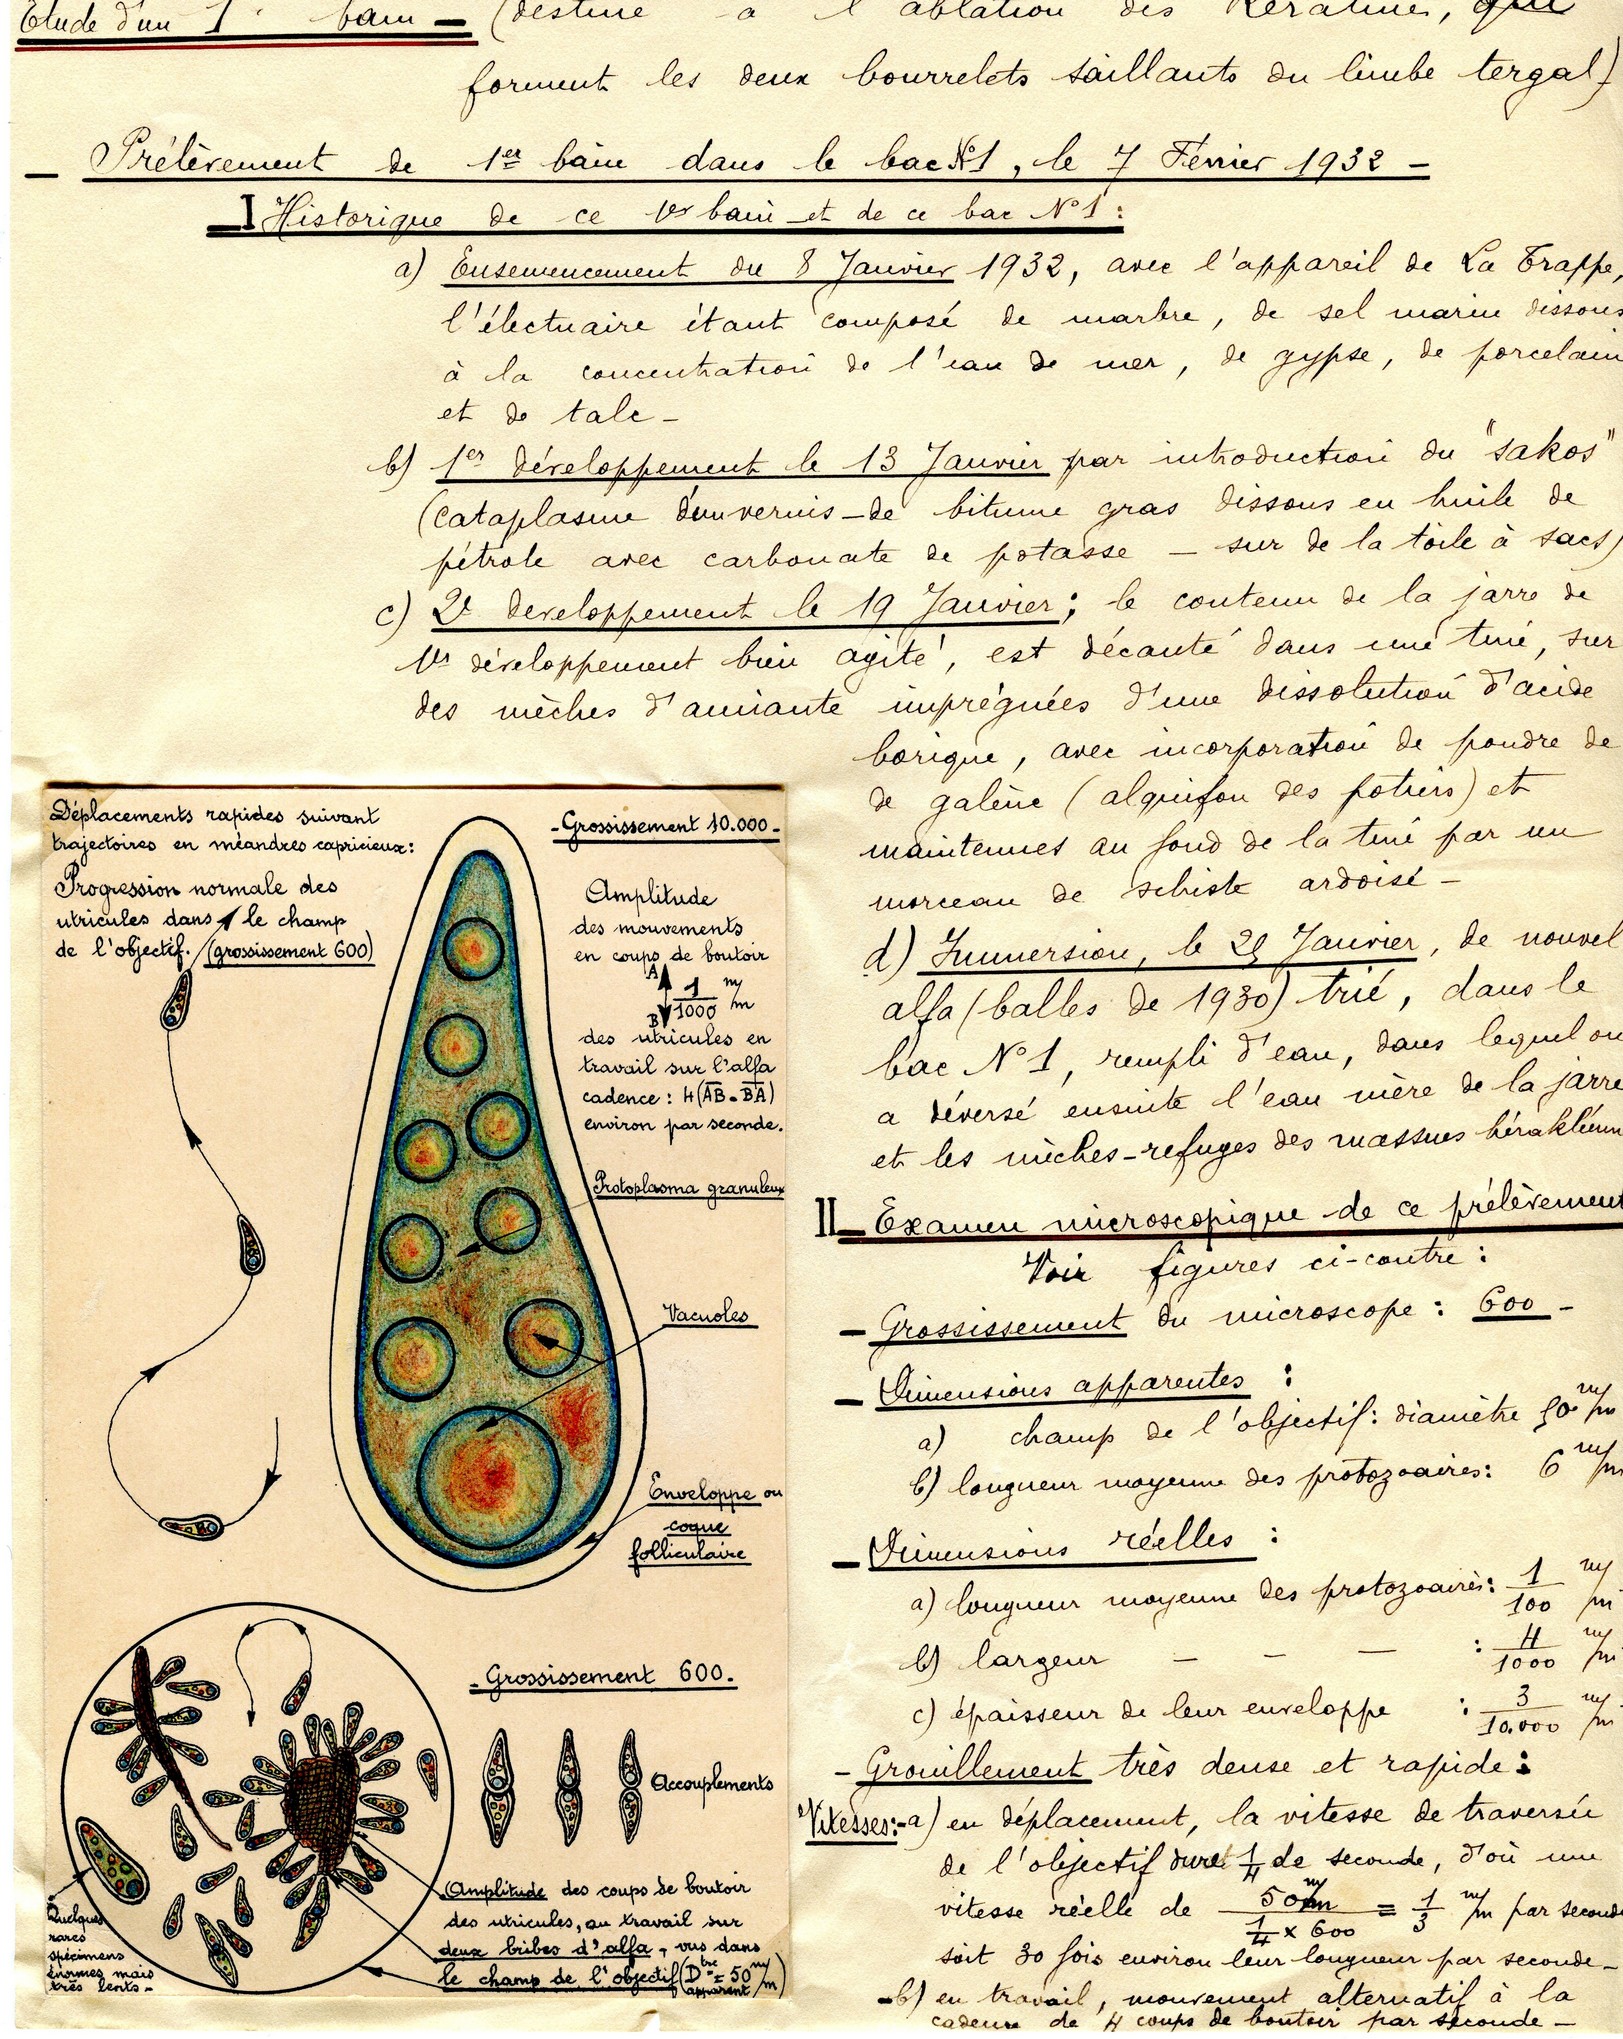 Etude d'un 1er bain — (destiné à l'ablation des Kératines, qui
forment les deux bourrelets saillants du limbe tergal)
— Prélèvement de 1er bain dans le bac N°1, le 7 Février 1932 —
I Historique de ce 1er bain et de ce bac N°1 :
a) Ensemencement du 8 Janvier 1932, avec l'appareil de La Trappe,
l'électuaire étant composé de marbre, de sel marin dissous
à la concentration de l'eau de mer, de gypse, de porcelain
et de talc —
b) 1er développement le 13 Janvier par introduction du "sakos"
(cataplasme d'un vernis — de bitume gras dissous en huile de
pétrole avec carbonate de potasse — sur de la toile à sacs)
c) 2e développement le 19 Janvier ; le contenu de la jarre de
1er développement bien agité, est décanté dans une tine, sur
des mèches d'amiante imprégnées d'une dissolution d'acide
borique, avec incorporation de poudre de
de galène (alquifou des potiers) et
maintenues au fond de la tine par un
morceau de schiste ardoisé —
d) Immersion, le Janvier, de nouvel
alfa (balles de 1930) trié, dans le
bac N°1, rempli d'eau, dans lequel on
a déversé ensuite l'eau mère de la jarre
et les mèches-refuges des massues hérakléenn
II — Examen microscopique de ce prélèvement
Voir figures ci-contre :
— Grossissement du microscope : 600 —
— Dimensions apparentes :
a) champ de l'objectif : diamètre 50 m/m
b) longueur moyenne des protozoaires : 6 m/m
— Dimensions réelles :
a) longueur moyenne des protozoaires : 1/100 m/m
b) largeur — — — : 4/1000 m/m
c) épaisseur de leur enveloppe : 3/10.000 m/m
— Grouillement très dense et rapide :
Vitesses : — a) en déplacement, la vitesse de traversée
de l'objectif dure 1/4 de seconde, d'où une
vitesse réelle de 50 m/m / 1/4 x 600 = 1/3 m/m par seconde
soit 30 fois environ leur longueur par seconde —
— b) en travail, mouvement alternatif à la
cadence de 4 coups de boutoir par seconde —
Déplacements rapides suivant
trajectoires en méandres capricieux :
Progression normale des
utricules dans le champ
de l'objectif. (grossissement 600)
- Grossissement 10.000 -
Amplitude
des mouvements
en coups de boutoir
A
1/1000 m/m
B
des utricules en
travail sur l'alfa
cadence : 4(AB - BA)
environ par seconde.
Protoplasma granuleux
Vacuoles
Enveloppe ou
coque
folliculaire
- Grossissement 600 -
Accouplements
Amplitude des coups de boutoir
des utricules, au travail sur
deux bribes d'alfa, vus dans
le champ de l'objectif (Dtre = 50 m/m)
apparent
Quelques
rares
spécimens
énormes mais
très lents -